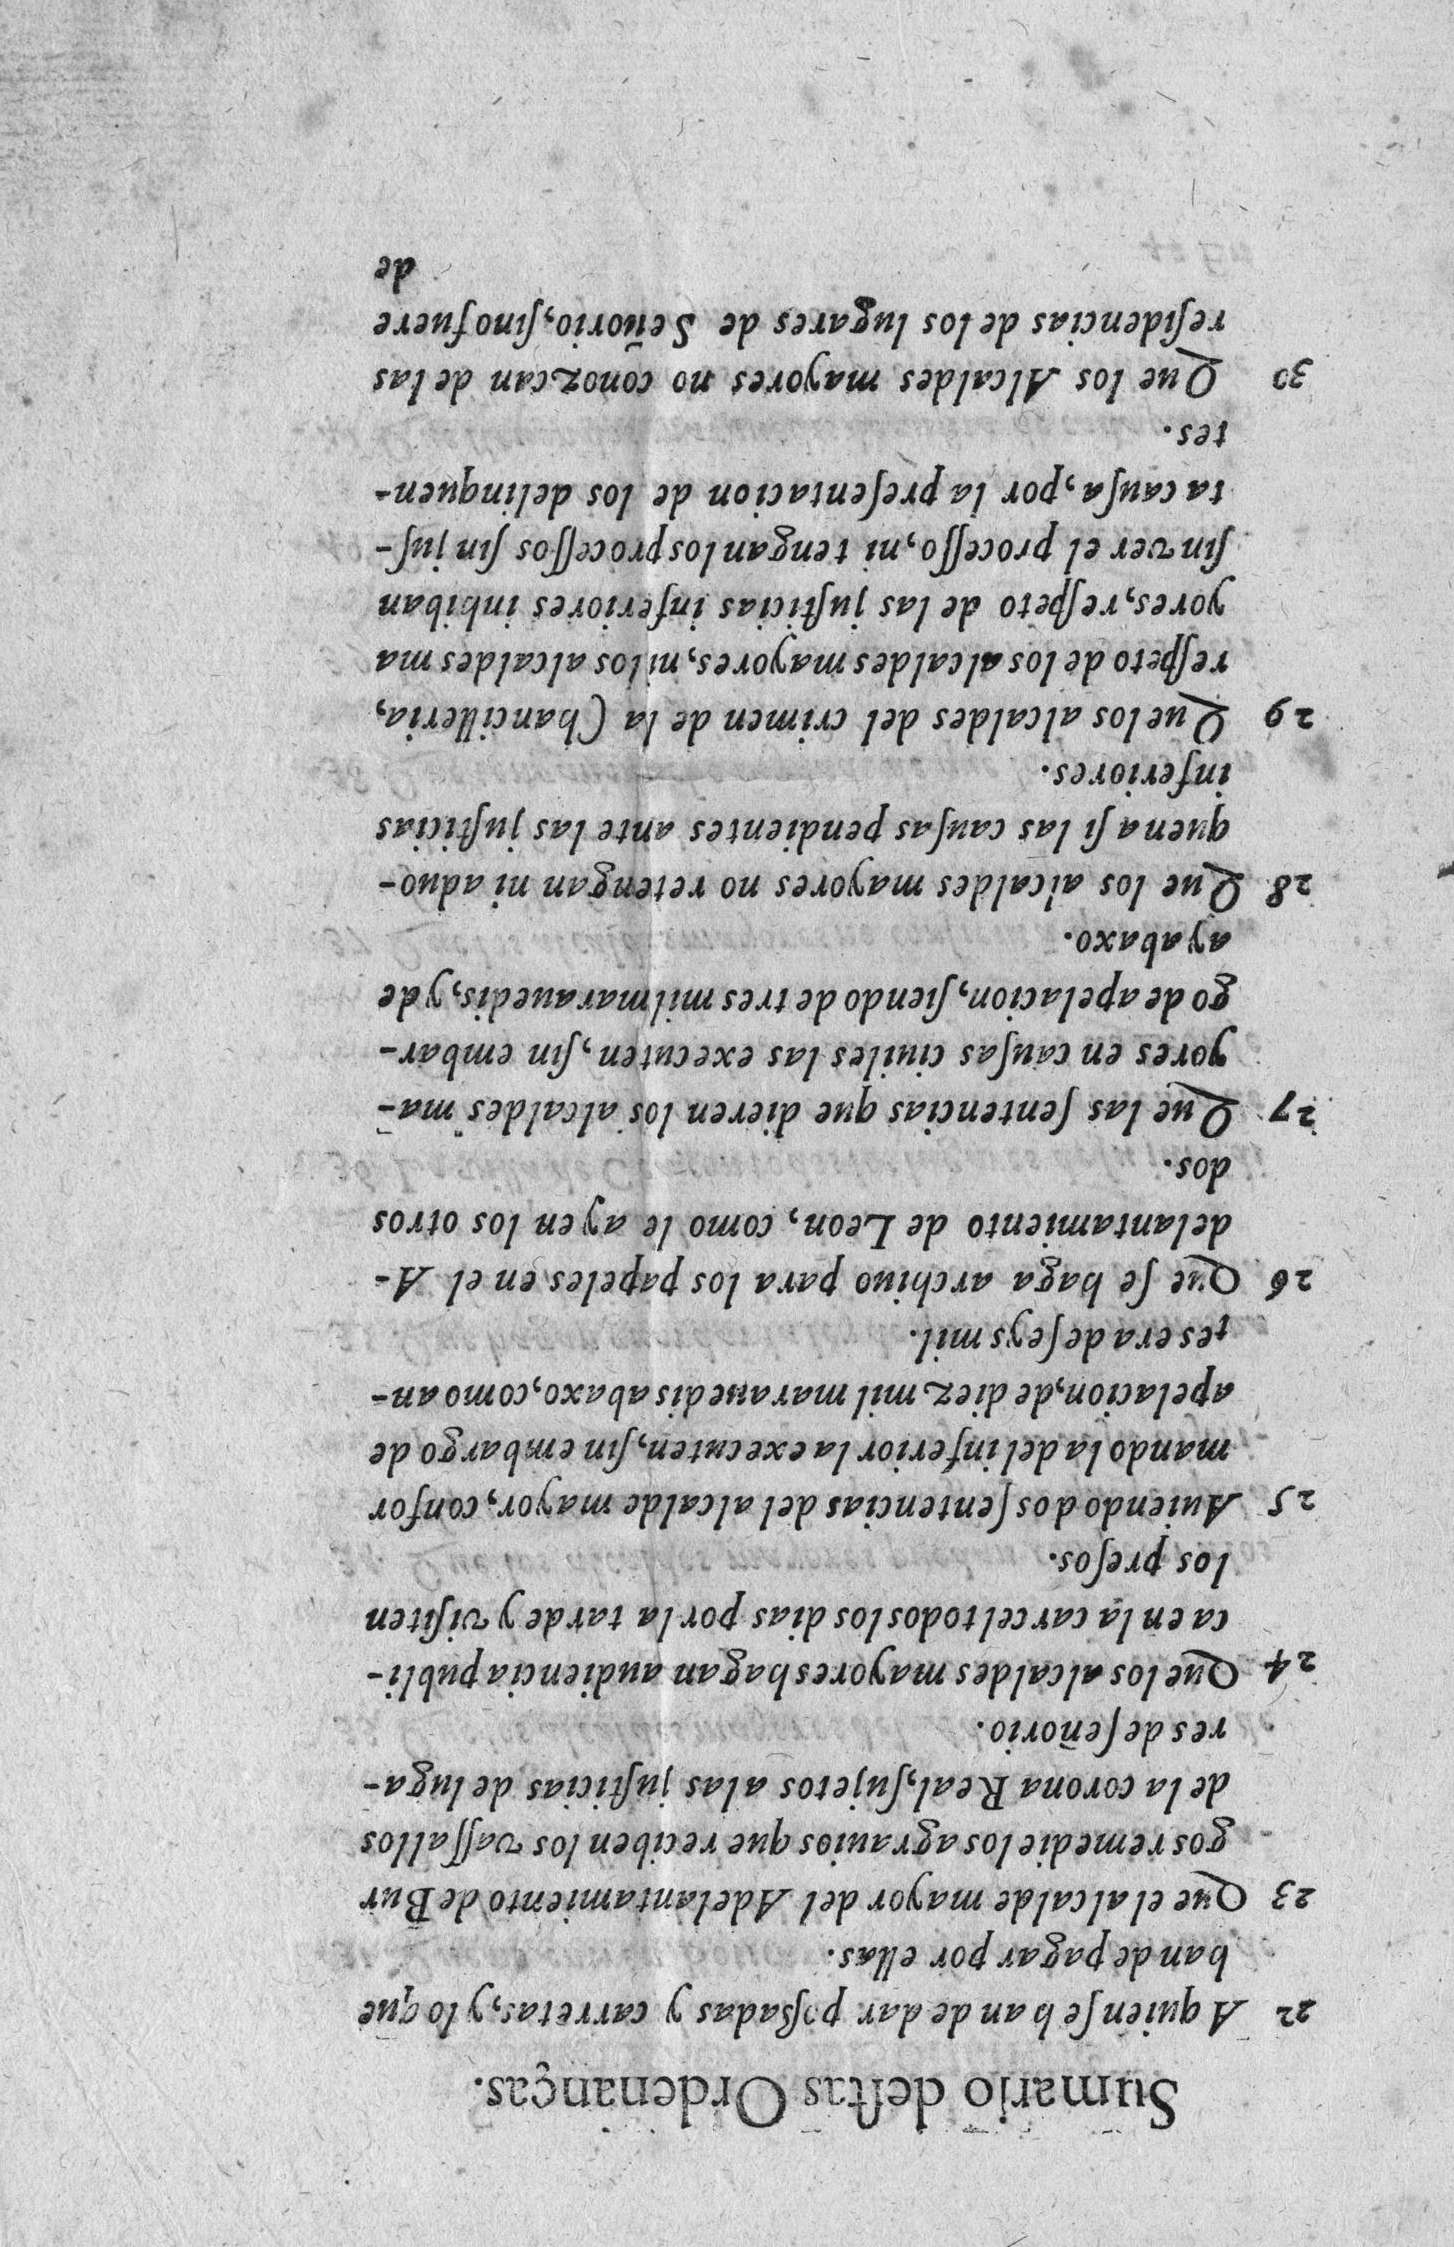 Sumario deſtas Ordenanças.
22 A quien ſe han de dar poſſadas y carretas, y lo que
han de pagar por ellas.
23 Que el alcalde mayor del Adelantamiento de Bur
gos remedie los agrauios que reciben los vaſſallos
de la corona Real, ſujetos a las juſticias de luga-
res de ſeñorio.
24 Que los alcaldes mayores hagan audiencia publi-
ca en la carcel todos los dias por la tarde y viſiten
los preſos.
25 Auiendo dos ſentencias del alcalde mayor, confor
mando la del inferior la executen, ſin embargo de
apelacion, de diez mil marauedis abaxo, como an-
tes era de ſeys mil.
26 Que ſe haga archiuo para los papeles en el A-
delantamiento de Leon, como le ay en los otros
dos.
27 Que las ſentencias que dieren los alcaldes ma-
yores en cauſas ciuiles las executen, ſin embar-
go de apelacion, ſiendo de tres mil marauedis, y de
ay abaxo.
28 Que los alcaldes mayores no retengan ni aduo-
quen a ſi las cauſas pendientes ante las juſticias
inferiores.
29 Que los alcaldes del crimen de la Chancilleria,
reſpeto de los alcaldes mayores, ni los alcaldes ma
yores, reſpeto de las juſticias inferiores inhiban
ſin ver el proceſſo, ni tengan los proceſſos ſin juſ-
ta cauſa, por la preſentacion de los delinquen-
tes.
30 Que los Alcaldes mayores no conozcan de las
reſidencias de los lugares de Señorio, ſino fuere
de